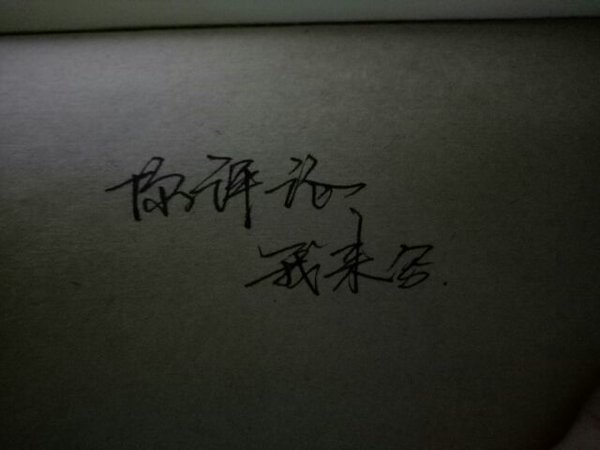 你评论、
我来写.